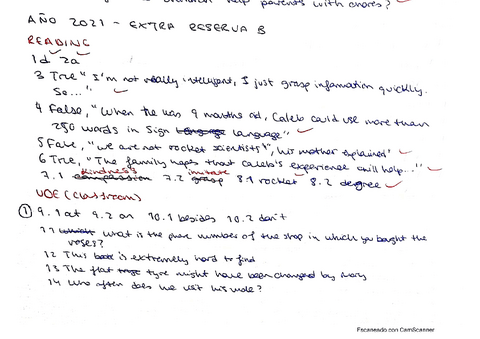 help parents with chores?
AÑO 2021 - EXTRA RESERVA B
READING
1d 2a
3 True "I'm not really intelligent, I just grasp information quickly.
So..."
4 False, "When he was 9 months old, Caleb could use more than
250 words in Sign language language"
5 False, "we are not rocket scientists", his mother explained"
6 True, "The family hopes that caleb's experience will help..."
kindness imitate
7.1 compassion 7.2 grasp 8.1 rocket 8.2 degree
UOE (Classroom)
1 9.1 at 9.2 on 10.1 besides 10.2 don't
11 which what is the phone number of the shop in which you bought the
roses?
12 This book is extremely hard to find
13 The flat tyre might have been changed by Mary
14 who often does he visit his uncle?
Escaneado con CamScanner